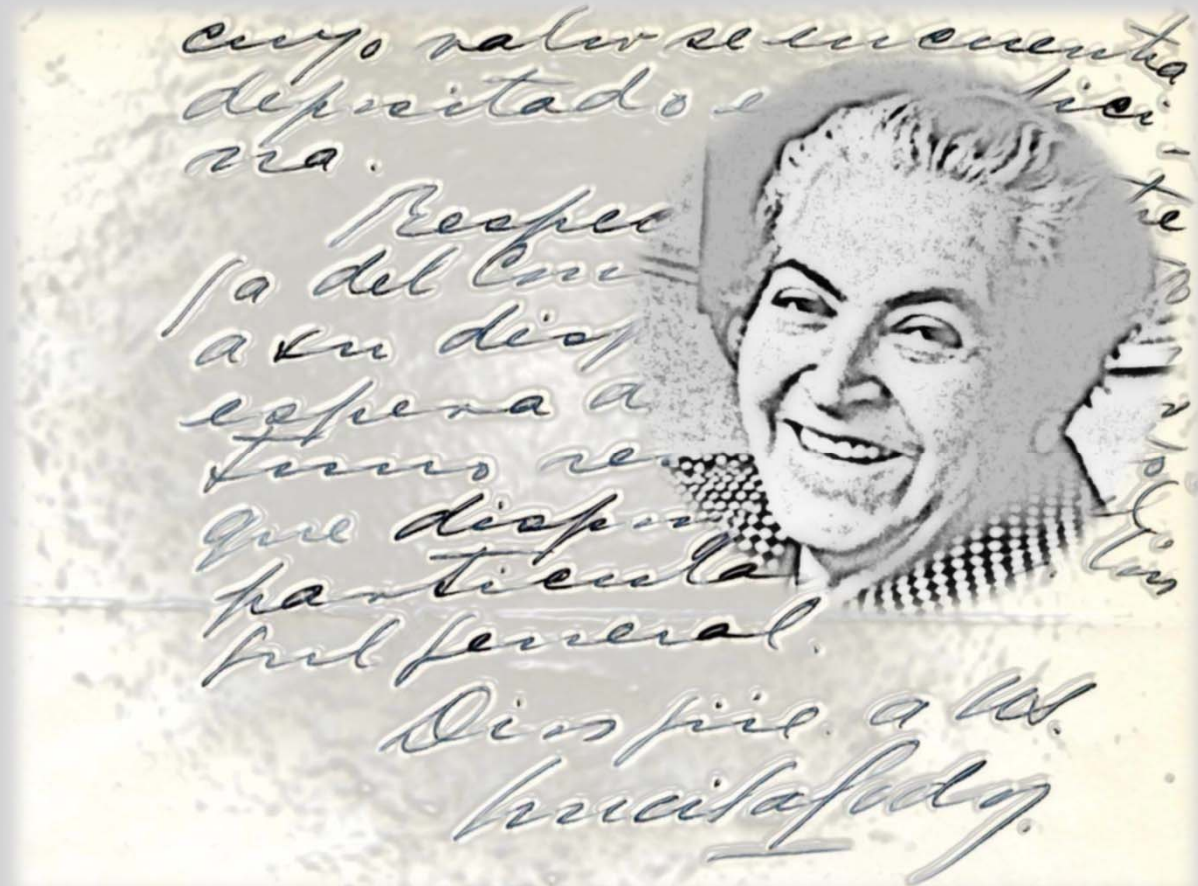 cuyo valor se encuentra
depositado e fici
na.
Respec te
sa del Con
a su disp
espera a
turno re
que dispon
particula
sul general.
Dios güe. a US.
Lucila Godoy.